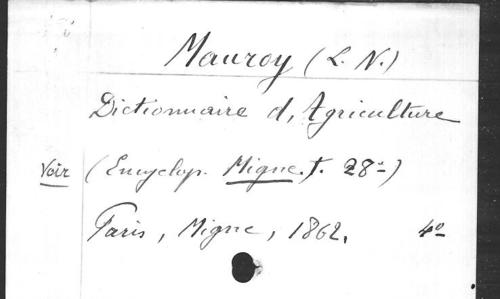 Mauroy (L. N.)
Dictionnaire d, Agriculture
Voir (Encyclop. Migne. t. 28º)
Paris, Migne, 1862. 4º